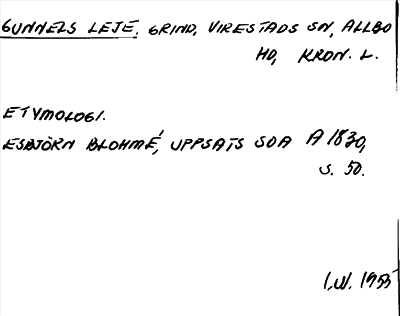 GUNNELS LEJE, GRIND, VIRESTADS SN, ALLBO
HD, KRON. L.
ETYMOLOGI.
ESBJÖRN BLOHMÉ, UPPSATS SOA A 1830,
S. 50.
I.W. 1955